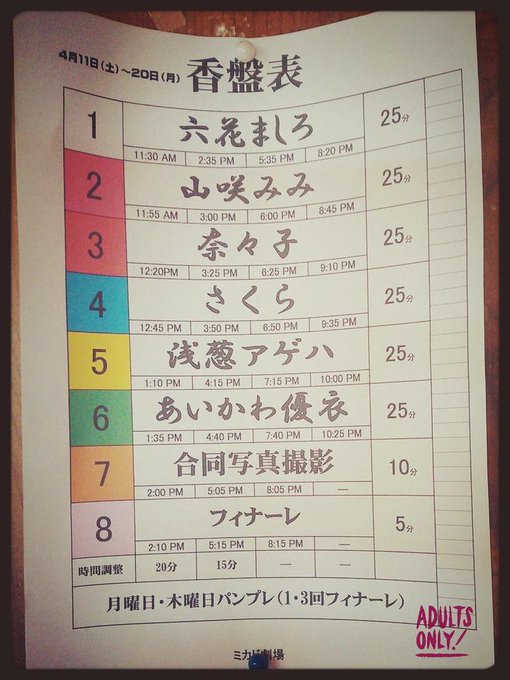 4月11日(土)～20日(月)
香盤表
1 六花ましろ 25分
11:30 AM 2:35 PM 5:35 PM 8:20 PM
2 山咲みみ 25分
11:55 AM 3:00 PM 6:00 PM 8:45 PM
3 奈々子 25分
12:20PM 3:25 PM 6:25 PM 9:10 PM
4 さくら 25分
12:45 PM 3:50 PM 6:50 PM 9:35 PM
5 浅葱アゲハ 25分
1:10 PM 4:15 PM 7:15 PM 10:00 PM
6 あいかわ優衣 25分
1:35 PM 4:40 PM 7:40 PM 10:25 PM
7 合同写真撮影 10分
2:00 PM 5:05 PM 8:05 PM —
8 フィナーレ 5分
2:10 PM 5:15 PM 8:15 PM —
時間調整 20分 15分 — —
月曜日・木曜日パンプレ(1・3回フィナーレ)
ADULTS
ONLY!
ミカド劇場